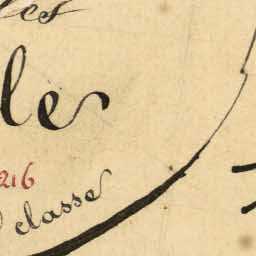 es
le
216
classe